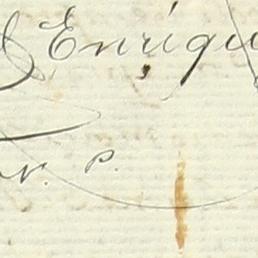 Enriqu
r. P.